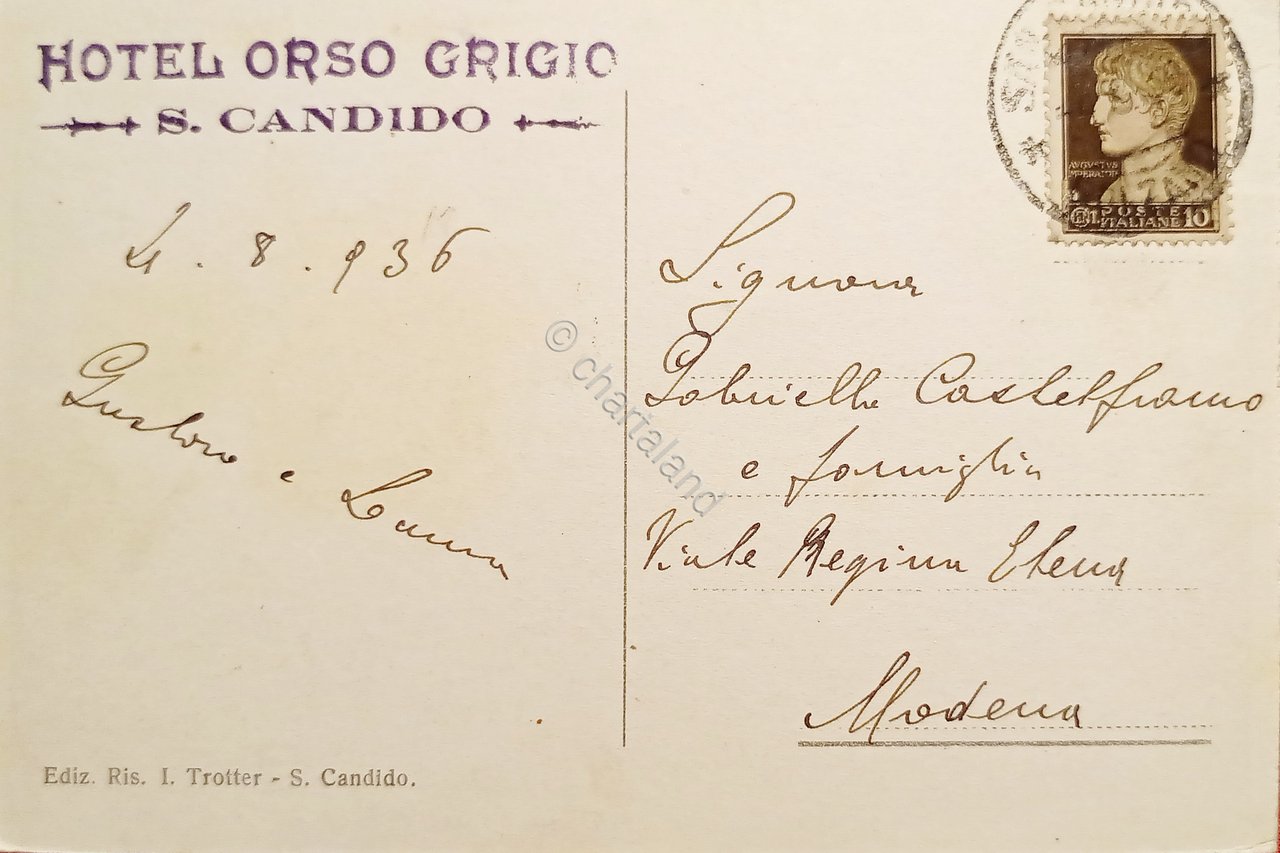 HOTEL ORSO GRIGIO
S. CANDIDO
4. 8. 936
Gustavo e
AVGVSTVS
IMPERATOR
CENT. POSTE ITALIANE 10
Signora
Gabriella Castelfranco
e famiglia
Viale Regina Elena
Modena
© chartaland
Ediz. Ris. I. Trotter - S. Candido.